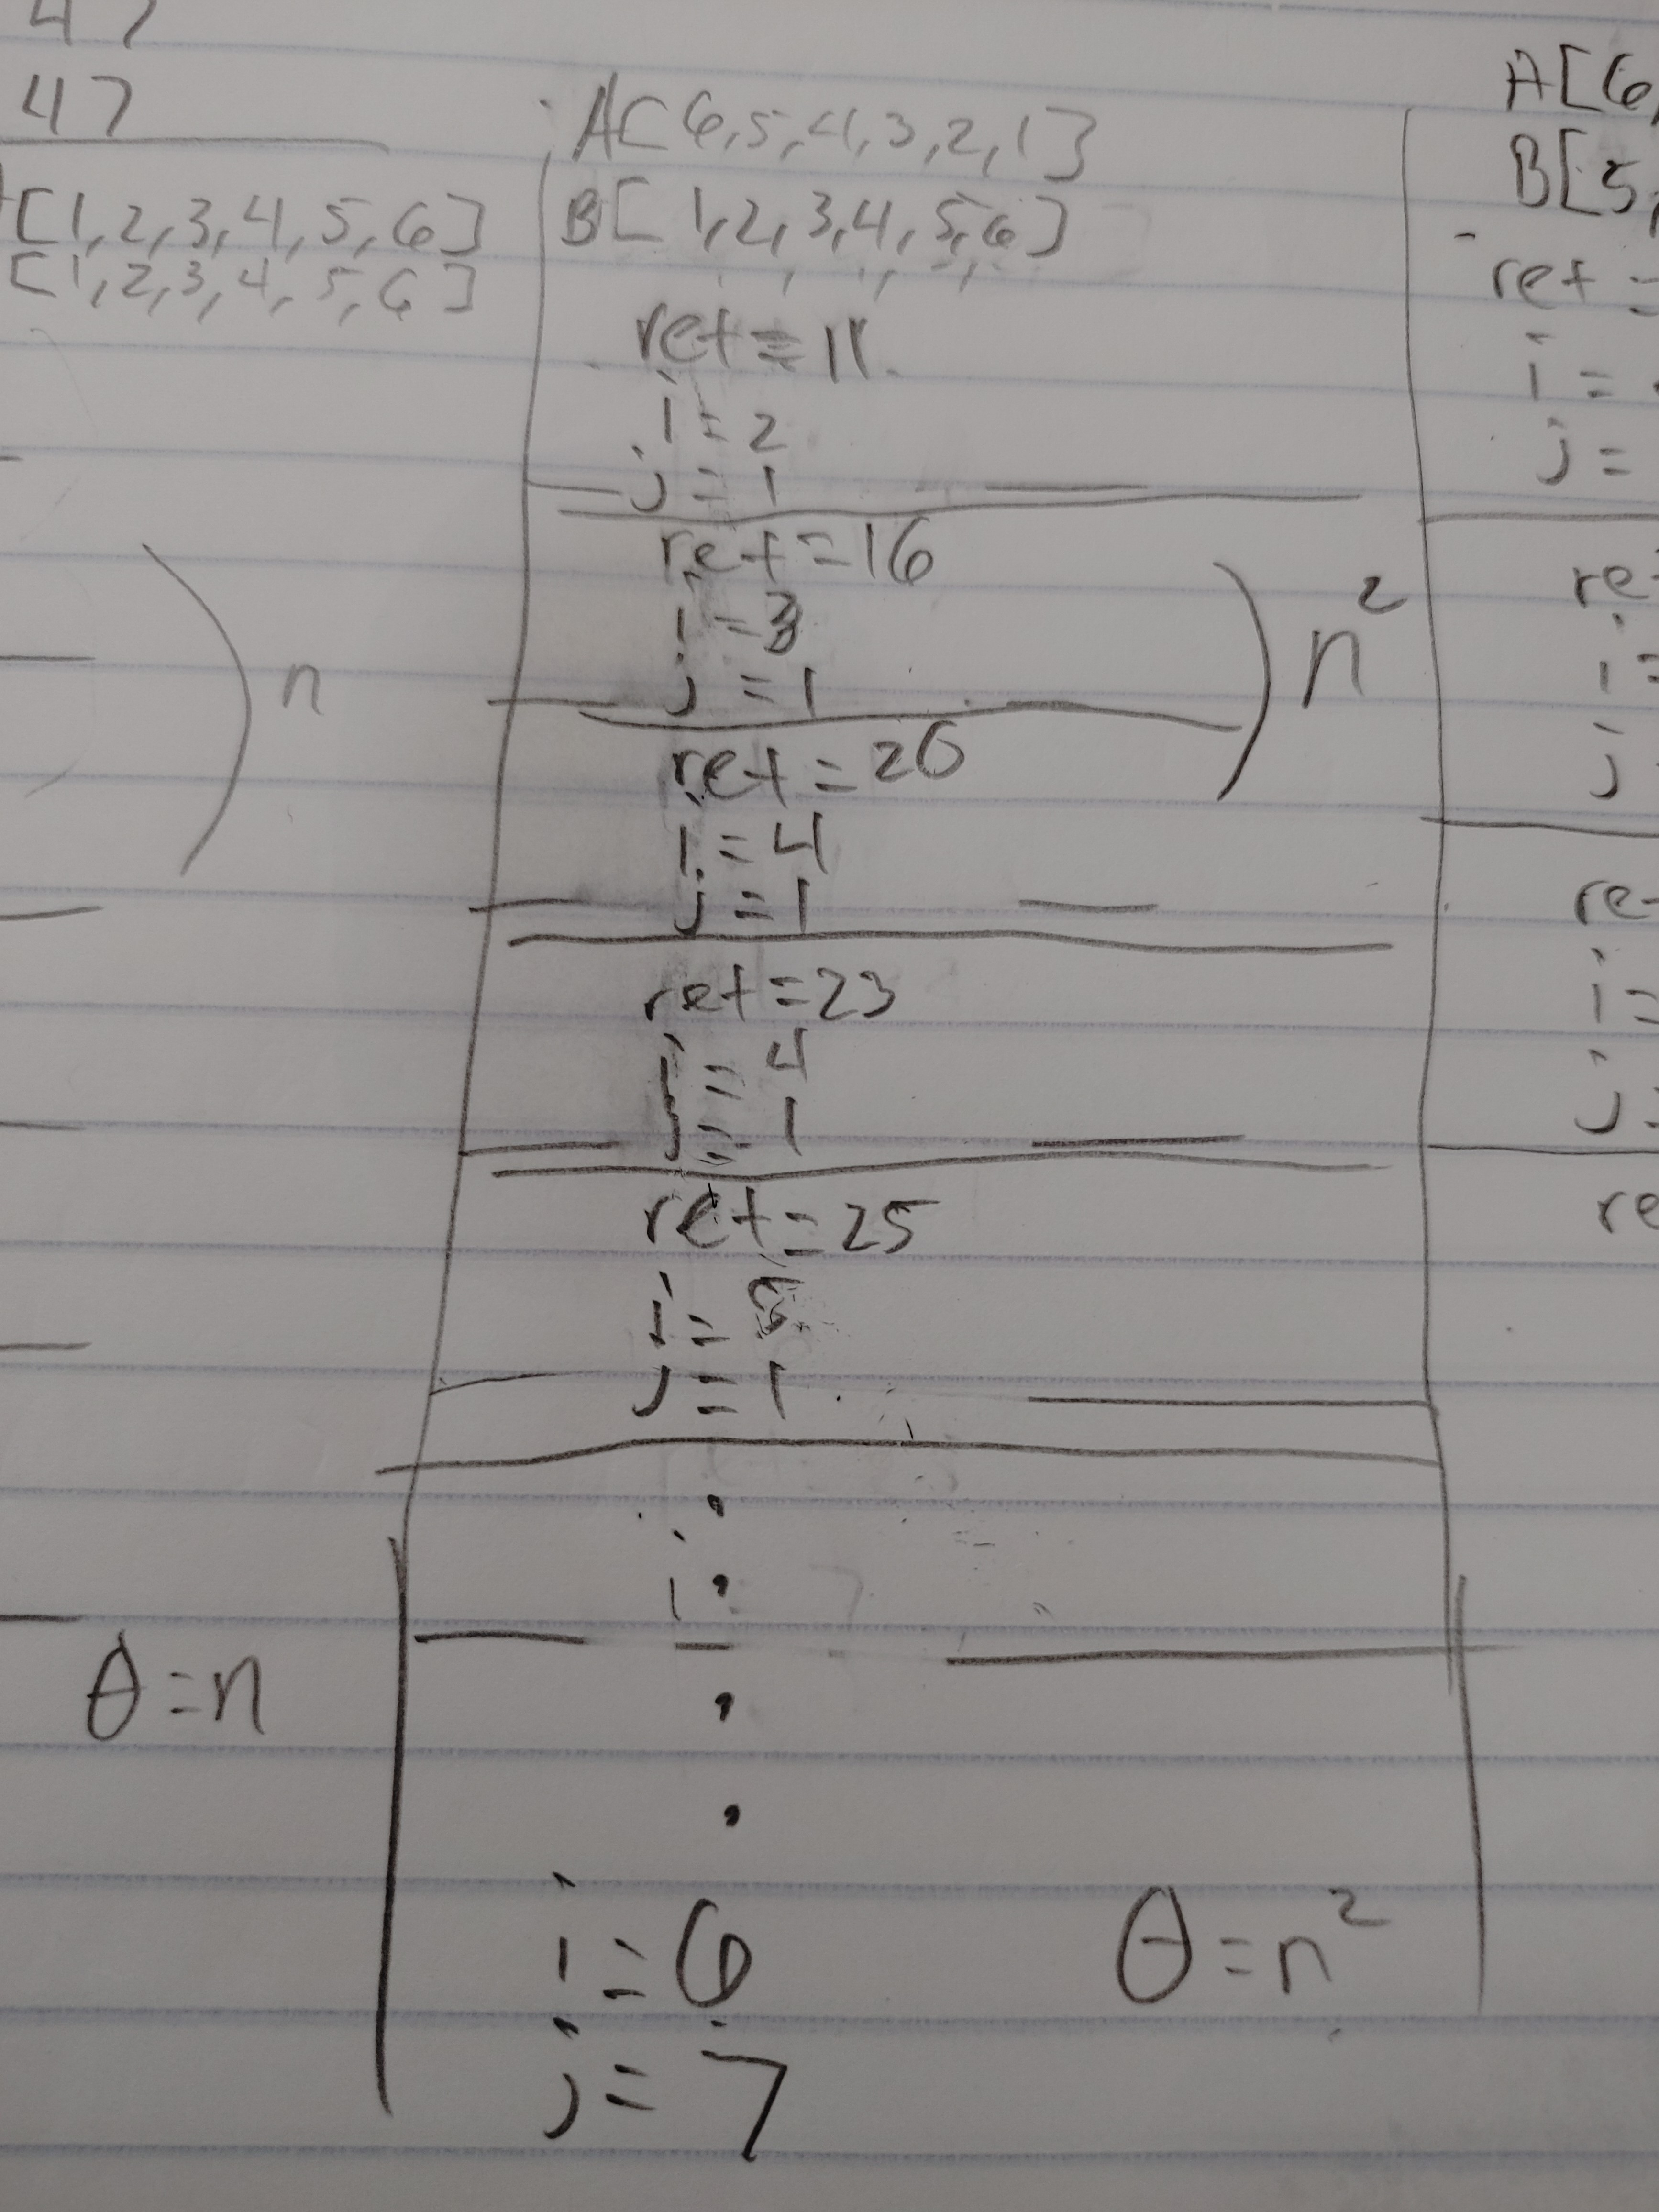 47
47
[1,2,3,4,5,6]
[1,2,3,4,5,6]
n
θ=n
A[6,5,4,3,2,1]
B[1,2,3,4,5,6]
ret=11
i=2
j=1
ret=16
i=3
j=1
n²
ret=20
i=4
j=1
ret=23
i=4
j=1
ret=25
i=
j=1
i=6
j=7
θ=n²
A[6,
B[5,
ret=
i=
j=
re
i=
j
re
i=
j
re